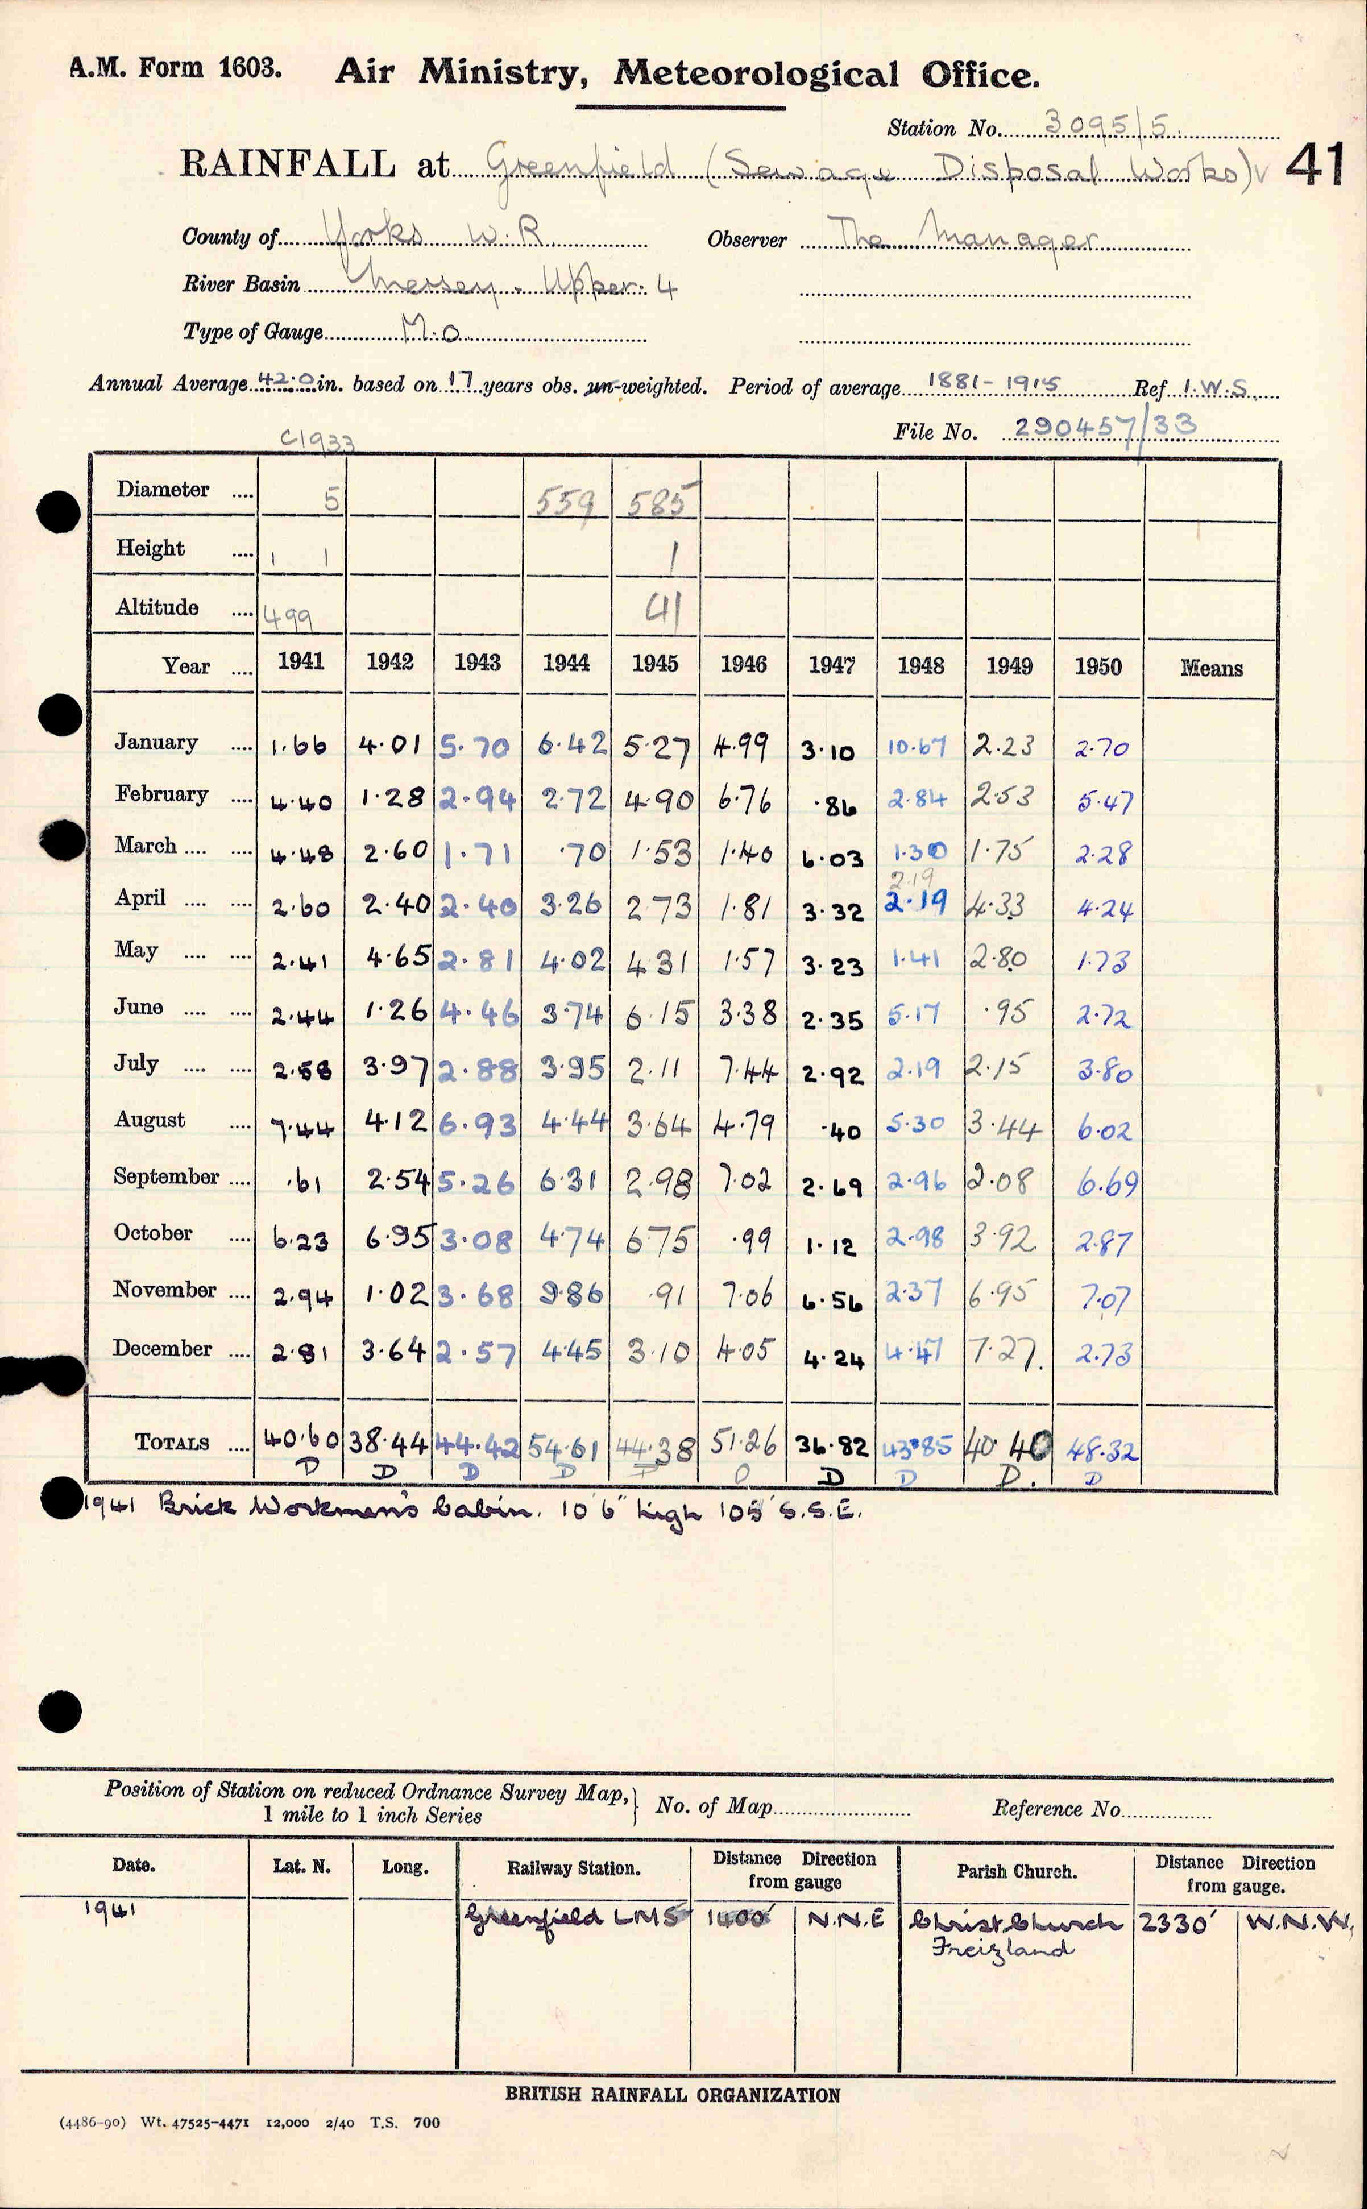 A.M. Form 1603. Air Ministry, Meteorological Office.
Station No. 3095/5.
RAINFALL at Greenfield (Sewage Disposal Works) 41
County of Yorks W.R. Observer The Manager
River Basin Mersey. Upper. 4
Type of Gauge M.O.
Annual Average 42.0 in. based on 17 years obs. un-weighted. Period of average 1881-1915 Ref I.W.S.
File No. 290457/33
C1933
Diameter .... 5 559 585
Height .... 1 1 1
Altitude .... 499 41
Year .... 1941 1942 1943 1944 1945 1946 1947 1948 1949 1950 Means
January .... 1.66 4.01 5.70 6.42 5.27 4.99 3.10 10.67 2.23 2.70
February .... 4.40 1.28 2.94 2.72 4.90 6.76 .86 2.84 2.53 5.47
March .... .... 4.48 2.60 1.71 .70 1.53 1.40 6.03 1.30 1.75 2.28
2.19
April .... .... 2.60 2.40 2.40 3.26 2.73 1.81 3.32 2.19 4.33 4.24
May .... .... 2.41 4.65 2.81 4.02 4.31 1.57 3.23 1.41 2.80 1.73
June .... .... 2.44 1.26 4.46 3.74 6.15 3.38 2.35 5.17 .95 2.72
July .... .... 2.58 3.97 2.88 3.95 2.11 7.44 2.92 2.19 2.15 3.80
August .... 7.44 4.12 6.93 4.44 3.64 4.79 .40 5.30 3.44 6.02
September .... .61 2.54 5.26 6.31 2.98 7.02 2.69 2.96 2.08 6.69
October .... 6.23 6.95 3.08 4.74 6.75 .99 1.12 2.98 3.92 2.87
November .... 2.94 1.02 3.68 9.86 .91 7.06 6.56 2.37 6.95 7.07
December .... 2.81 3.64 2.57 4.45 3.10 4.05 4.24 4.47 7.27. 2.73
TOTALS .... 40.60 38.44 44.42 54.61 44.38 51.26 36.82 43.85 40.40 48.32
D D D D D D D D D. D
1941 Brick Workmen's Cabin. 10'6" high 105' S.S.E.
Position of Station on reduced Ordnance Survey Map,
1 mile to 1 inch Series } No. of Map Reference No.
Date. Lat. N. Long. Railway Station. Distance Direction from gauge Parish Church. Distance Direction from gauge.
1941 Greenfield LMS 1400' N.N.E Christ Church 2330' W.N.W.
Freizland
BRITISH RAINFALL ORGANIZATION
(4486-90) Wt. 47525-4471 12,000 2/40 T.S. 700